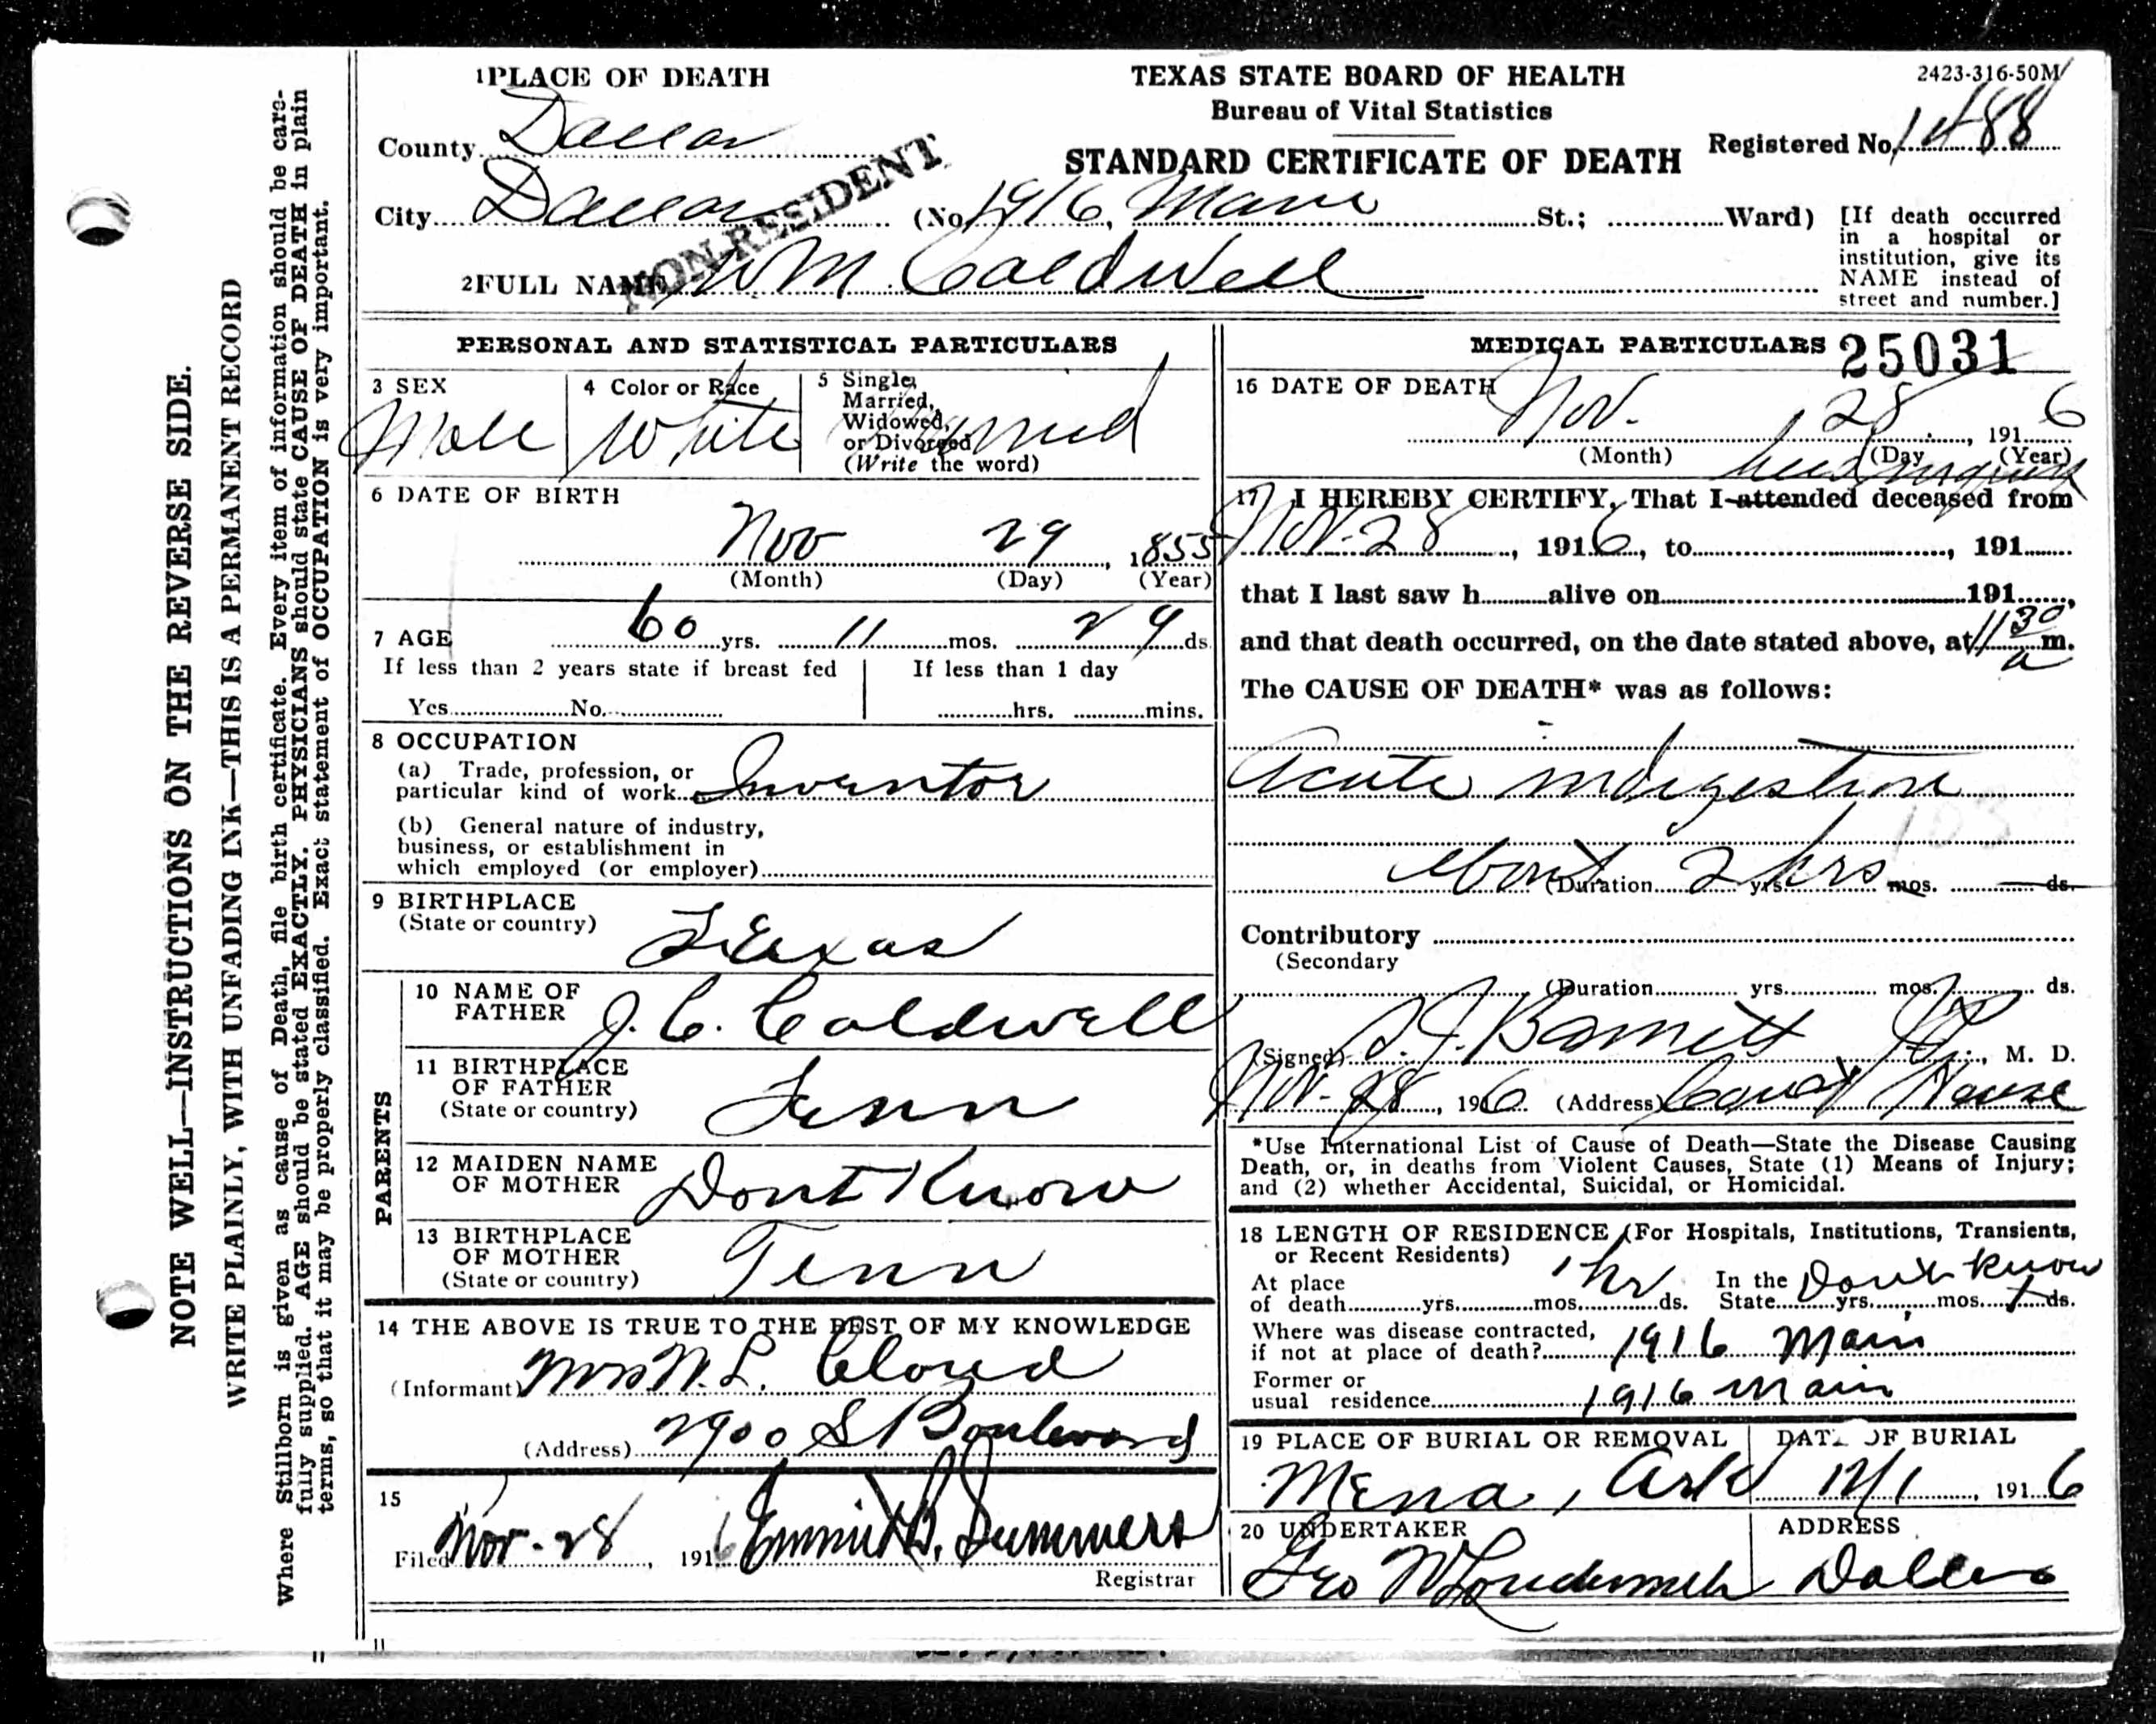 NOTE WELL—INSTRUCTIONS ON THE REVERSE SIDE.
WRITE PLAINLY, WITH UNFADING INK—THIS IS A PERMANENT RECORD
Where Stillborn is given as cause of Death, file birth certificate. Every item of information should be care-
fully supplied. AGE should be stated EXACTLY. PHYSICIANS should state CAUSE OF DEATH in plain
terms, so that it may be properly classified. Exact statement of OCCUPATION is very important.
1 PLACE OF DEATH
County Dallas
City Dallas
NON-RESIDENT
TEXAS STATE BOARD OF HEALTH
Bureau of Vital Statistics
STANDARD CERTIFICATE OF DEATH
2423-316-50M
Registered No. 1488
(No. 1916, Main St.; Ward)
[If death occurred
in a hospital or
institution, give its
NAME instead of
street and number.]
2 FULL NAME Wm Caldwell
PERSONAL AND STATISTICAL PARTICULARS
3 SEX
Male
4 Color or Race
White
5 Single,
Married,
Widowed,
or Divorced
(Write the word)
Married
6 DATE OF BIRTH
Nov 29, 1855
(Month) (Day) (Year)
7 AGE 60 yrs. 11 mos. 29 ds.
If less than 2 years state if breast fed
Yes No
If less than 1 day
hrs. mins.
8 OCCUPATION
(a) Trade, profession, or
particular kind of work Inventor
(b) General nature of industry,
business, or establishment in
which employed (or employer)
9 BIRTHPLACE
(State or country)
Texas
PARENTS
10 NAME OF
FATHER
J. C. Caldwell
11 BIRTHPLACE
OF FATHER
(State or country)
Tenn
12 MAIDEN NAME
OF MOTHER
Dont Know
13 BIRTHPLACE
OF MOTHER
(State or country)
Tenn
14 THE ABOVE IS TRUE TO THE BEST OF MY KNOWLEDGE
(Informant) Mrs W. L. Cloud
(Address) 2900 S Boulevard
15
Filed Nov. 28, 1916 Emmit B. Summers
Registrar
MEDICAL PARTICULARS 25031
16 DATE OF DEATH
Nov. 28, 1916
(Month) (Day (Year)
held inquest
17 I HEREBY CERTIFY, That I attended deceased from
Nov. 28, 1916, to , 191
that I last saw h alive on 191 ,
and that death occurred, on the date stated above, at 11 30 a m.
The CAUSE OF DEATH* was as follows:
Acute indigestion
103
about (Duration 2 yrs hrs mos. ds.
Contributory
(Secondary
(Duration yrs. mos. ds.
(Signed) Barnett J.P., M. D.
Nov. 28, 1916 (Address) Court House
*Use International List of Cause of Death—State the Disease Causing
Death, or, in deaths from Violent Causes, State (1) Means of Injury;
and (2) whether Accidental, Suicidal, or Homicidal.
18 LENGTH OF RESIDENCE (For Hospitals, Institutions, Transients,
or Recent Residents)
At place
of death yrs. mos. ds. 1 hr
In the
State yrs. mos. ds. Dont Know
Where was disease contracted,
if not at place of death? 1916 Main
Former or
usual residence 1916 Main
19 PLACE OF BURIAL OR REMOVAL
Mena, Ark
DATE OF BURIAL
12/1, 1916
20 UNDERTAKER
Geo W Loudermilk
ADDRESS
Dallas